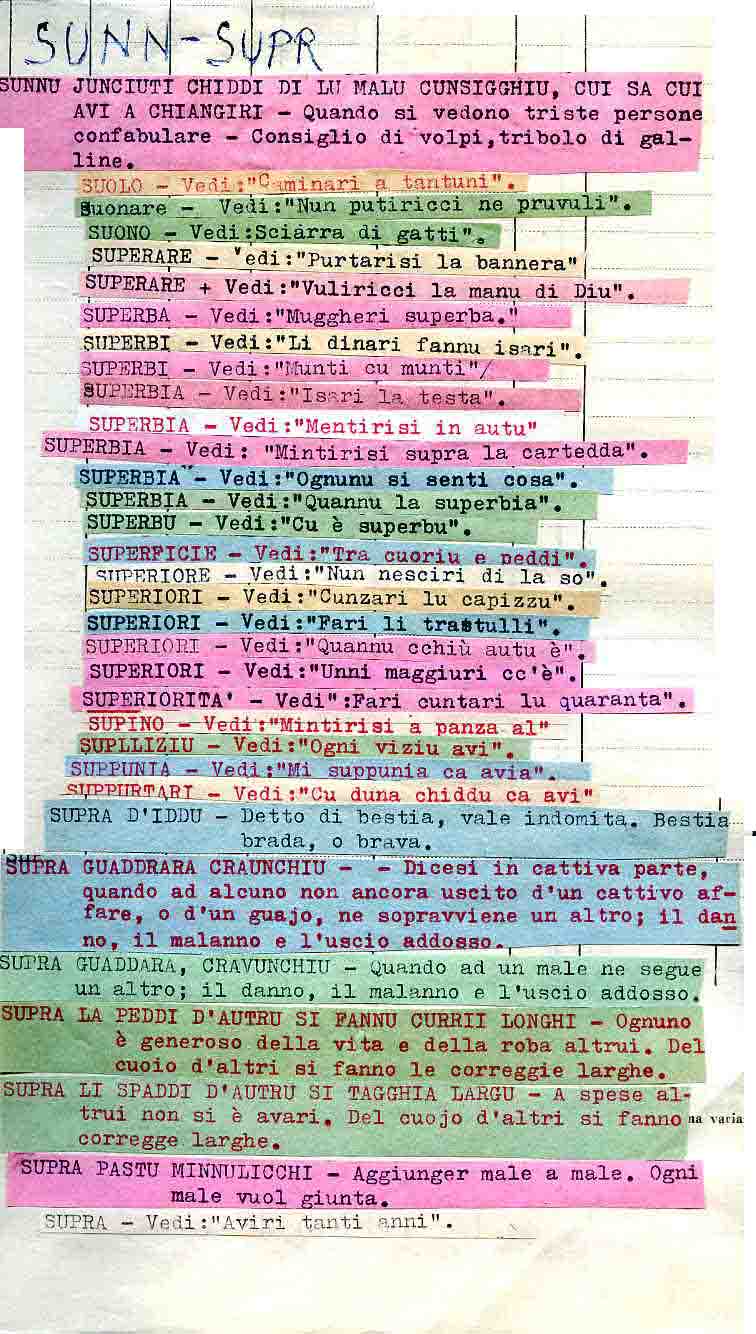 SUNN-SUPR
SUNNU JUNCIUTI CHIDDI DI LU MALU CUNSIGGHIU, CUI SA CUI
AVI A CHIANGIRI - Quando si vedono triste persone
confabulare - Consiglio di volpi,tribolo di gal-
line.
SUOLO - Vedi:"Caminari a tantuni".
Suonare - Vedi:"Nun putiricci ne pruvuli".
SUONO - Vedi:Sciarra di gatti".
SUPERARE - Vedi:"Purtarisi la bannera"
SUPERARE + Vedi:"Vuliricci la manu di Diu".
SUPERBA - Vedi:"Muggheri superba."
SUPERBI - Vedi:"Li dinari fannu isari".
SUPERBI - Vedi:"Munti cu munti"/
SUPERBIA - Vedi:"Isari la testa".
SUPERBIA - Vedi:"Mentirisi in autu"
SUPERBIA - Vedi: "Mintirisi supra la cartedda".
SUPERBIA - Vedi:"Ognunu si senti cosa".
SUPERBIA - Vedi:"Quannu la superbia".
SUPERBU - Vedi:"Cu è superbu".
SUPERFICIE - Vedi:"Tra cuoriu e peddi".
SUPERIORE - Vedi:"Nun nesciri di la so".
SUPERIORI - Vedi:"Cunzari lu capizzu".
SUPERIORI - Vedi:"Fari li trastulli".
SUPERIORI - Vedi:"Quannu cchiù autu è".
SUPERIORI - Vedi:"Unni maggiuri cc'è".
SUPERIORITA' - Vedi":Fari cuntari lu quaranta".
SUPINO - Vedi:"Mintirisi a panza al"
SUPLLIZIU - Vedi:"Ogni viziu avi".
SUPPUNIA - Vedi:"Mi suppunia ca avia".
SUPPURTARI - Vedi:"Cu duna chiddu ca avi"
SUPRA D'IDDU - Detto di bestia, vale indomita. Bestia
brada, o brava.
SUPRA GUADDRARA CRAUNCHIU - - Dicesi in cattiva parte,
quando ad alcuno non ancora uscito d'un cattivo af-
fare, o d'un guajo, ne sopravviene un altro; il dan
no, il malanno e l'uscio addosso.
SUPRA GUADDARA, CRAVUNCHIU - Quando ad un male ne segue
un altro; il danno, il malanno e l'uscio addosso.
SUPRA LA PEDDI D'AUTRU SI FANNU CURRII LONGHI - Ognuno
è generoso della vita e della roba altrui. Del
cuoio d'altri si fanno le correggie larghe.
SUPRA LI SPADDI D'AUTRU SI TAGGHIA LARGU - A spese al-
trui non si è avari. Del cuojo d'altri si fanno na varia
corregge larghe.
SUPRA PASTU MINNULICCHI - Aggiunger male a male. Ogni
male vuol giunta.
SUPRA - Vedi:"Aviri tanti anni".